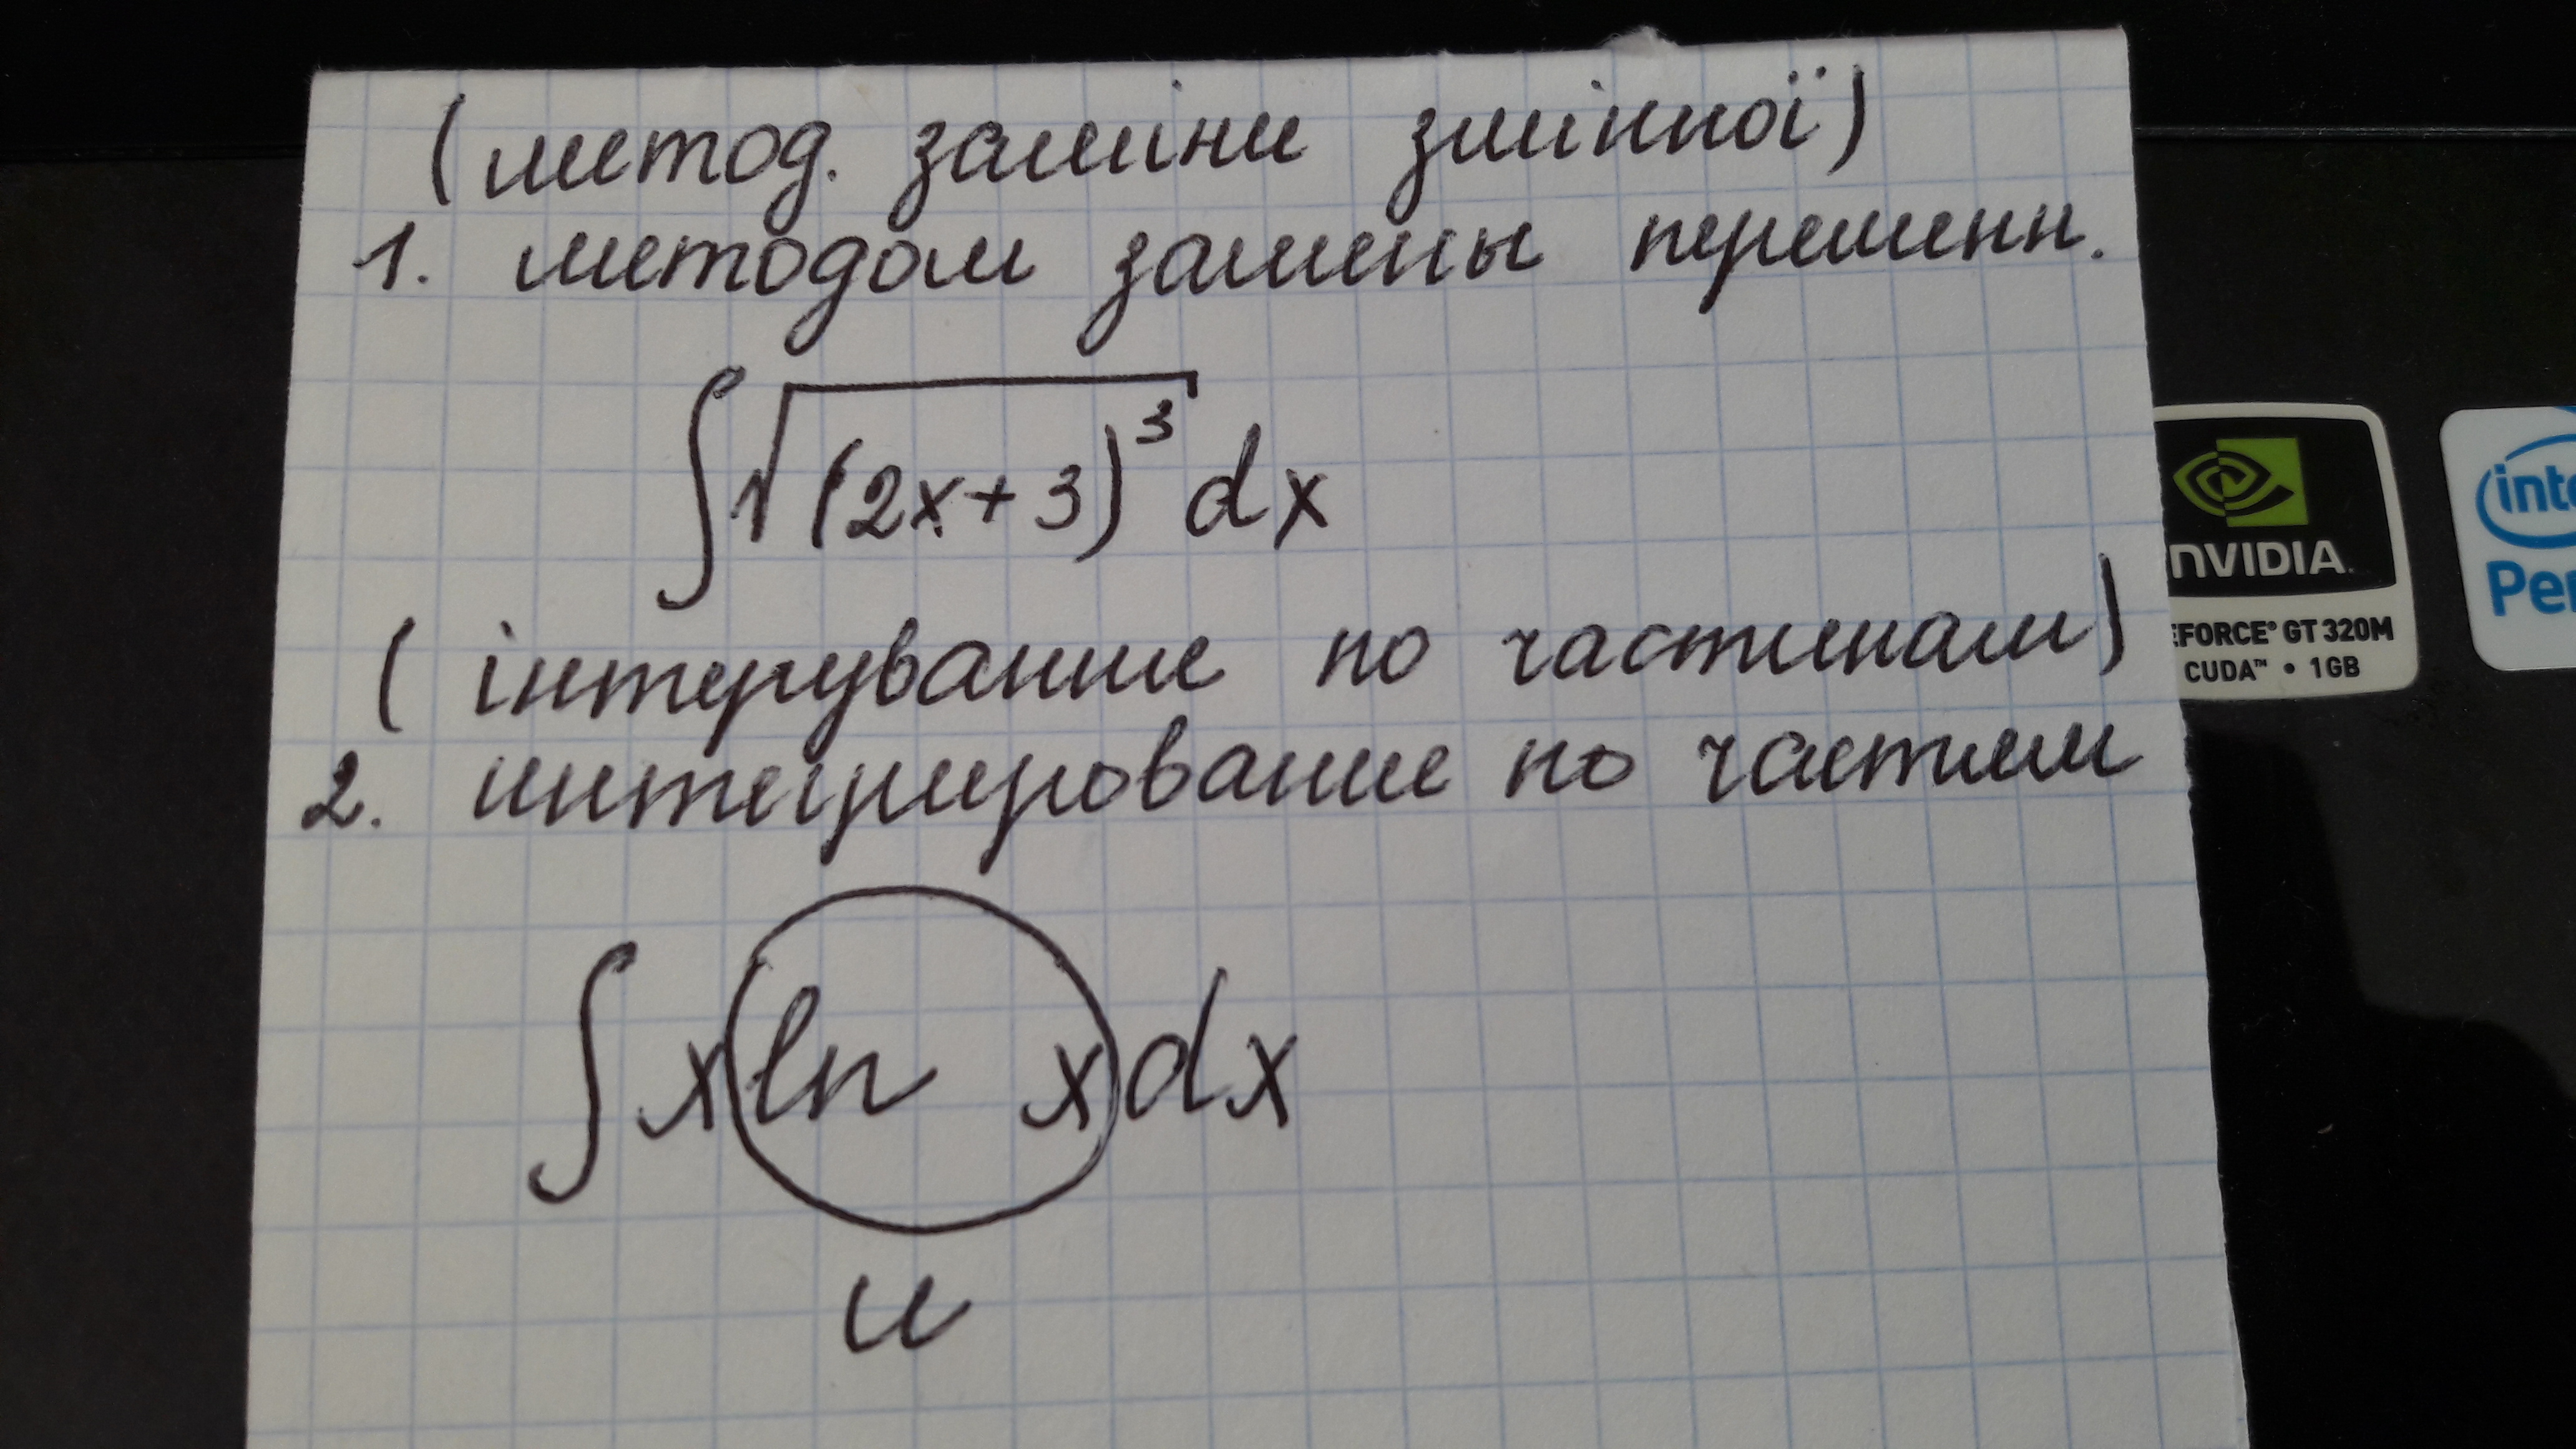 (метод. заміни змінної)
1. методом замены переменн.
∫√(2x+3)³ dx
(інтерування по частинам)
2. интегрирование по частям
∫ x ln x dx
u
nVIDIA
EFORCE® GT 320M
CUDA™ • 1GB
inte
Pen